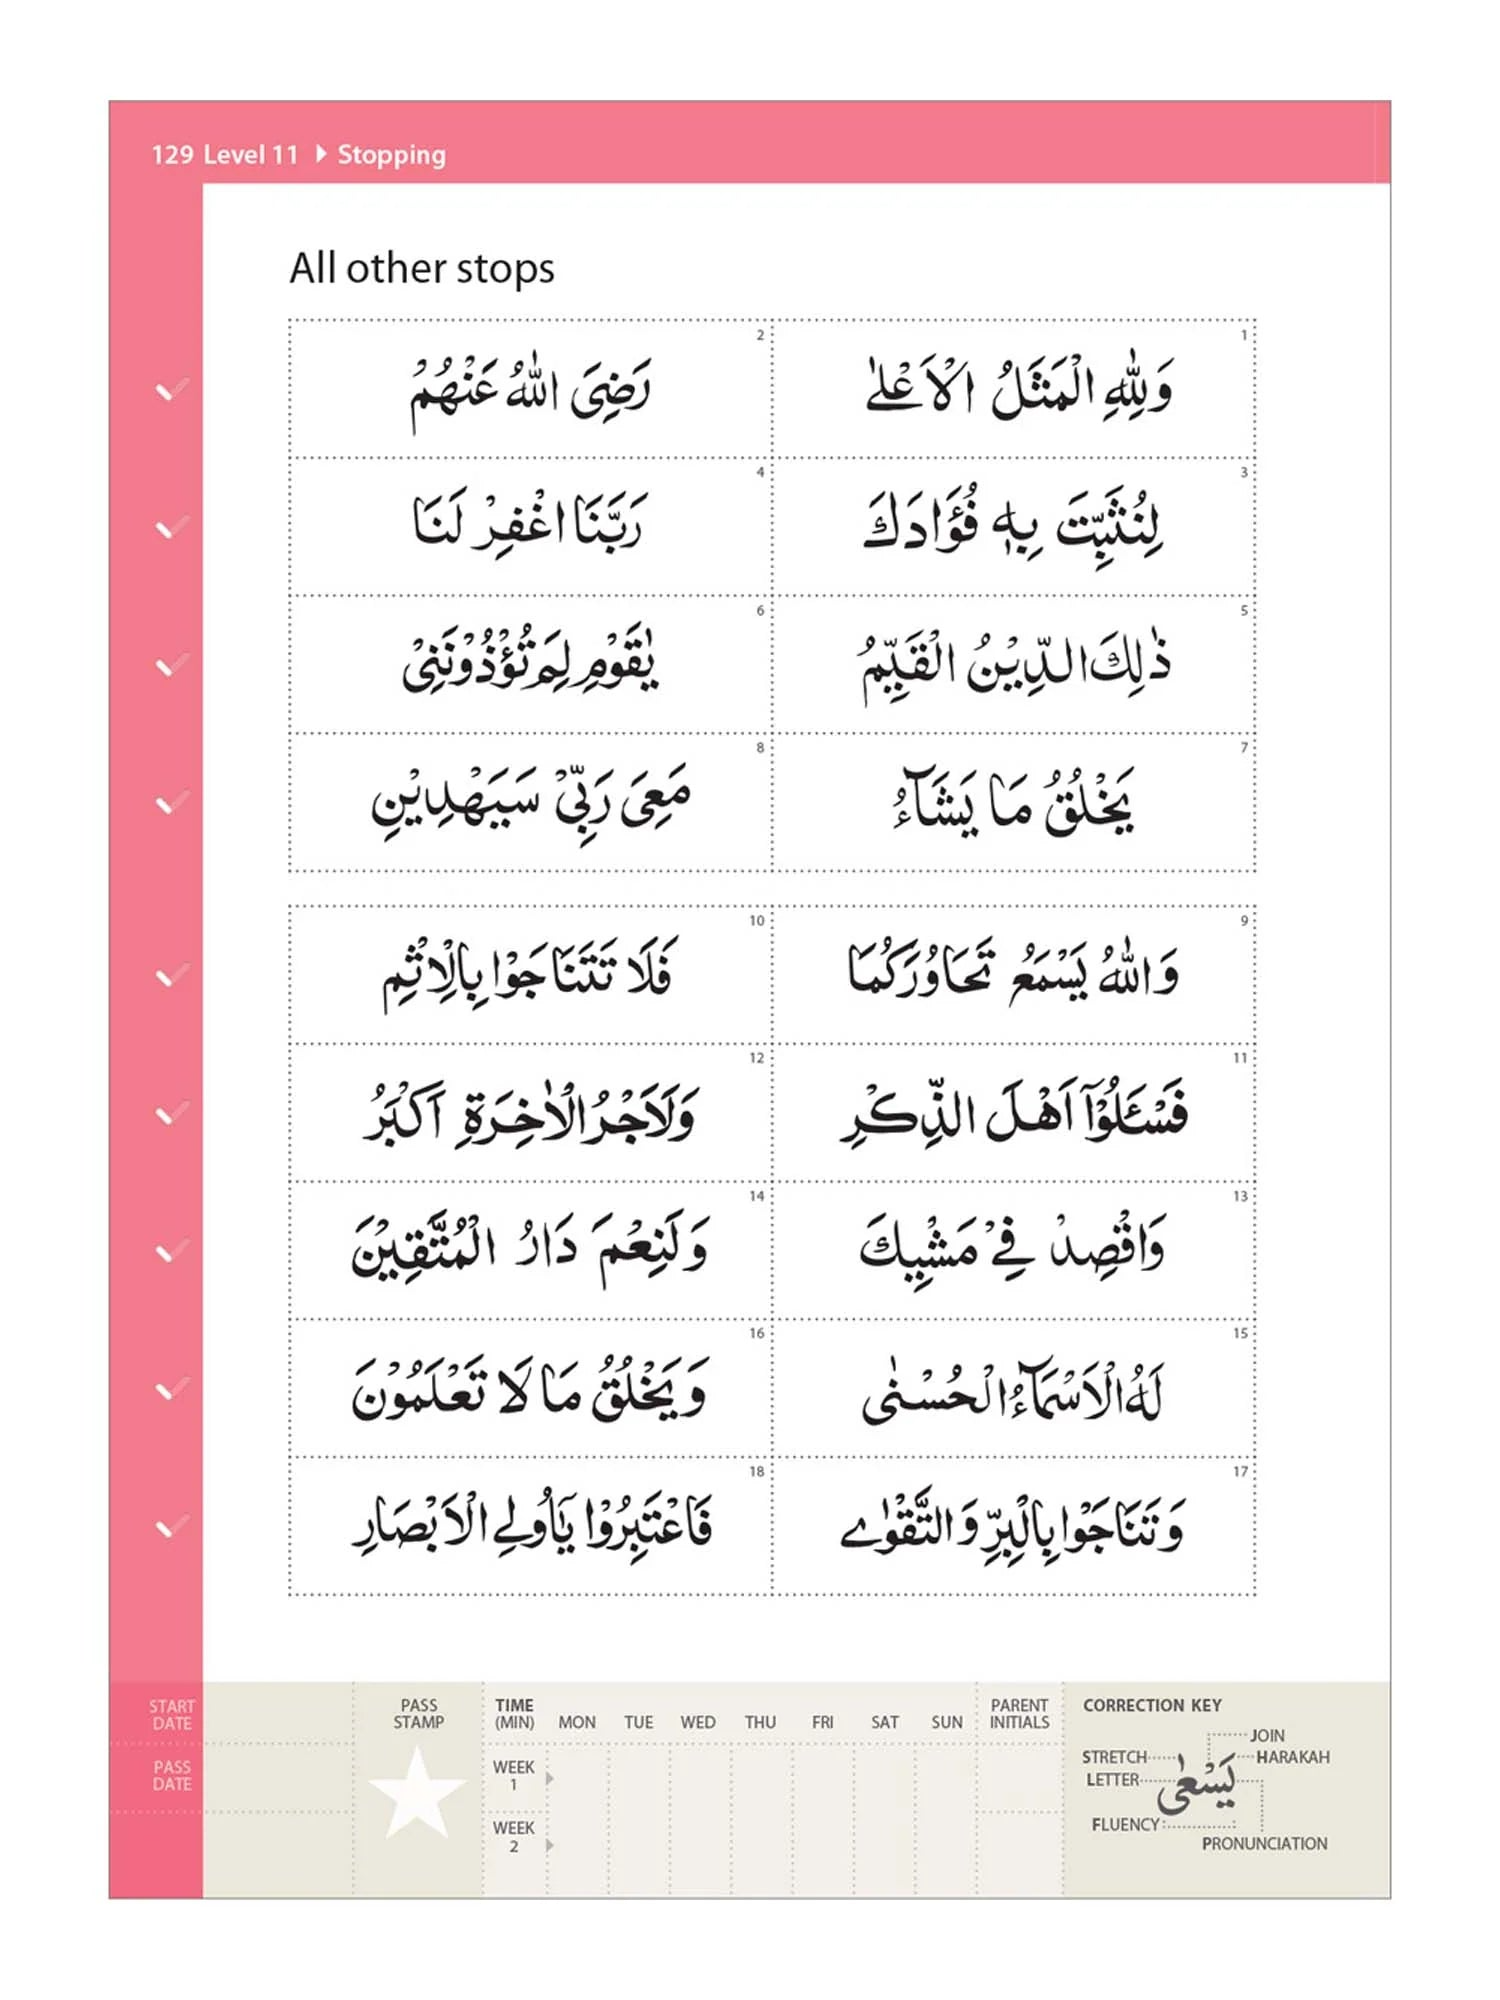 129 Level 11 ▶ Stopping
All other stops
1
وَلِلّٰهِ الْمَثَلُ الْاَعْلٰى
2
رَضِىَ اللّٰهُ عَنْهُمْ
3
لِنُثَبِّتَ بِهٖ فُؤَادَكَ
4
رَبَّنَا اغْفِرْ لَنَا
5
ذٰلِكَ الدِّيْنُ الْقَيِّمُ
6
يٰقَوْمِ لِمَ تُؤْذُوْنَنِىْ
7
يَخْلُقُ مَا يَشَآءُ
8
مَعِىَ رَبِّىْ سَيَهْدِيْنِ
9
وَاللّٰهُ يَسْمَعُ تَحَاوُرَكُمَا
10
فَلَا تَتَنَاجَوْا بِالْاِثْمِ
11
فَسْـَٔلُوْٓا اَهْلَ الذِّكْرِ
12
وَلَاَجْرُ الْاٰخِرَةِ اَكْبَرُ
13
وَاقْصِدْ فِيْ مَشْيِكَ
14
وَلَنِعْمَ دَارُ الْمُتَّقِيْنَ
15
لَهُ الْاَسْمَآءُ الْحُسْنٰى
16
وَيَخْلُقُ مَا لَا تَعْلَمُوْنَ
17
وَتَنَاجَوْا بِالْبِرِّ وَالتَّقْوٰى
18
فَاعْتَبِرُوْا يٰٓاُولِى الْاَبْصَارِ
START DATE
PASS DATE
PASS STAMP
TIME (MIN) MON TUE WED THU FRI SAT SUN
WEEK 1
WEEK 2
PARENT INITIALS
CORRECTION KEY
JOIN
STRETCH
HARAKAH
LETTER
يَسْعٰى
FLUENCY
PRONUNCIATION